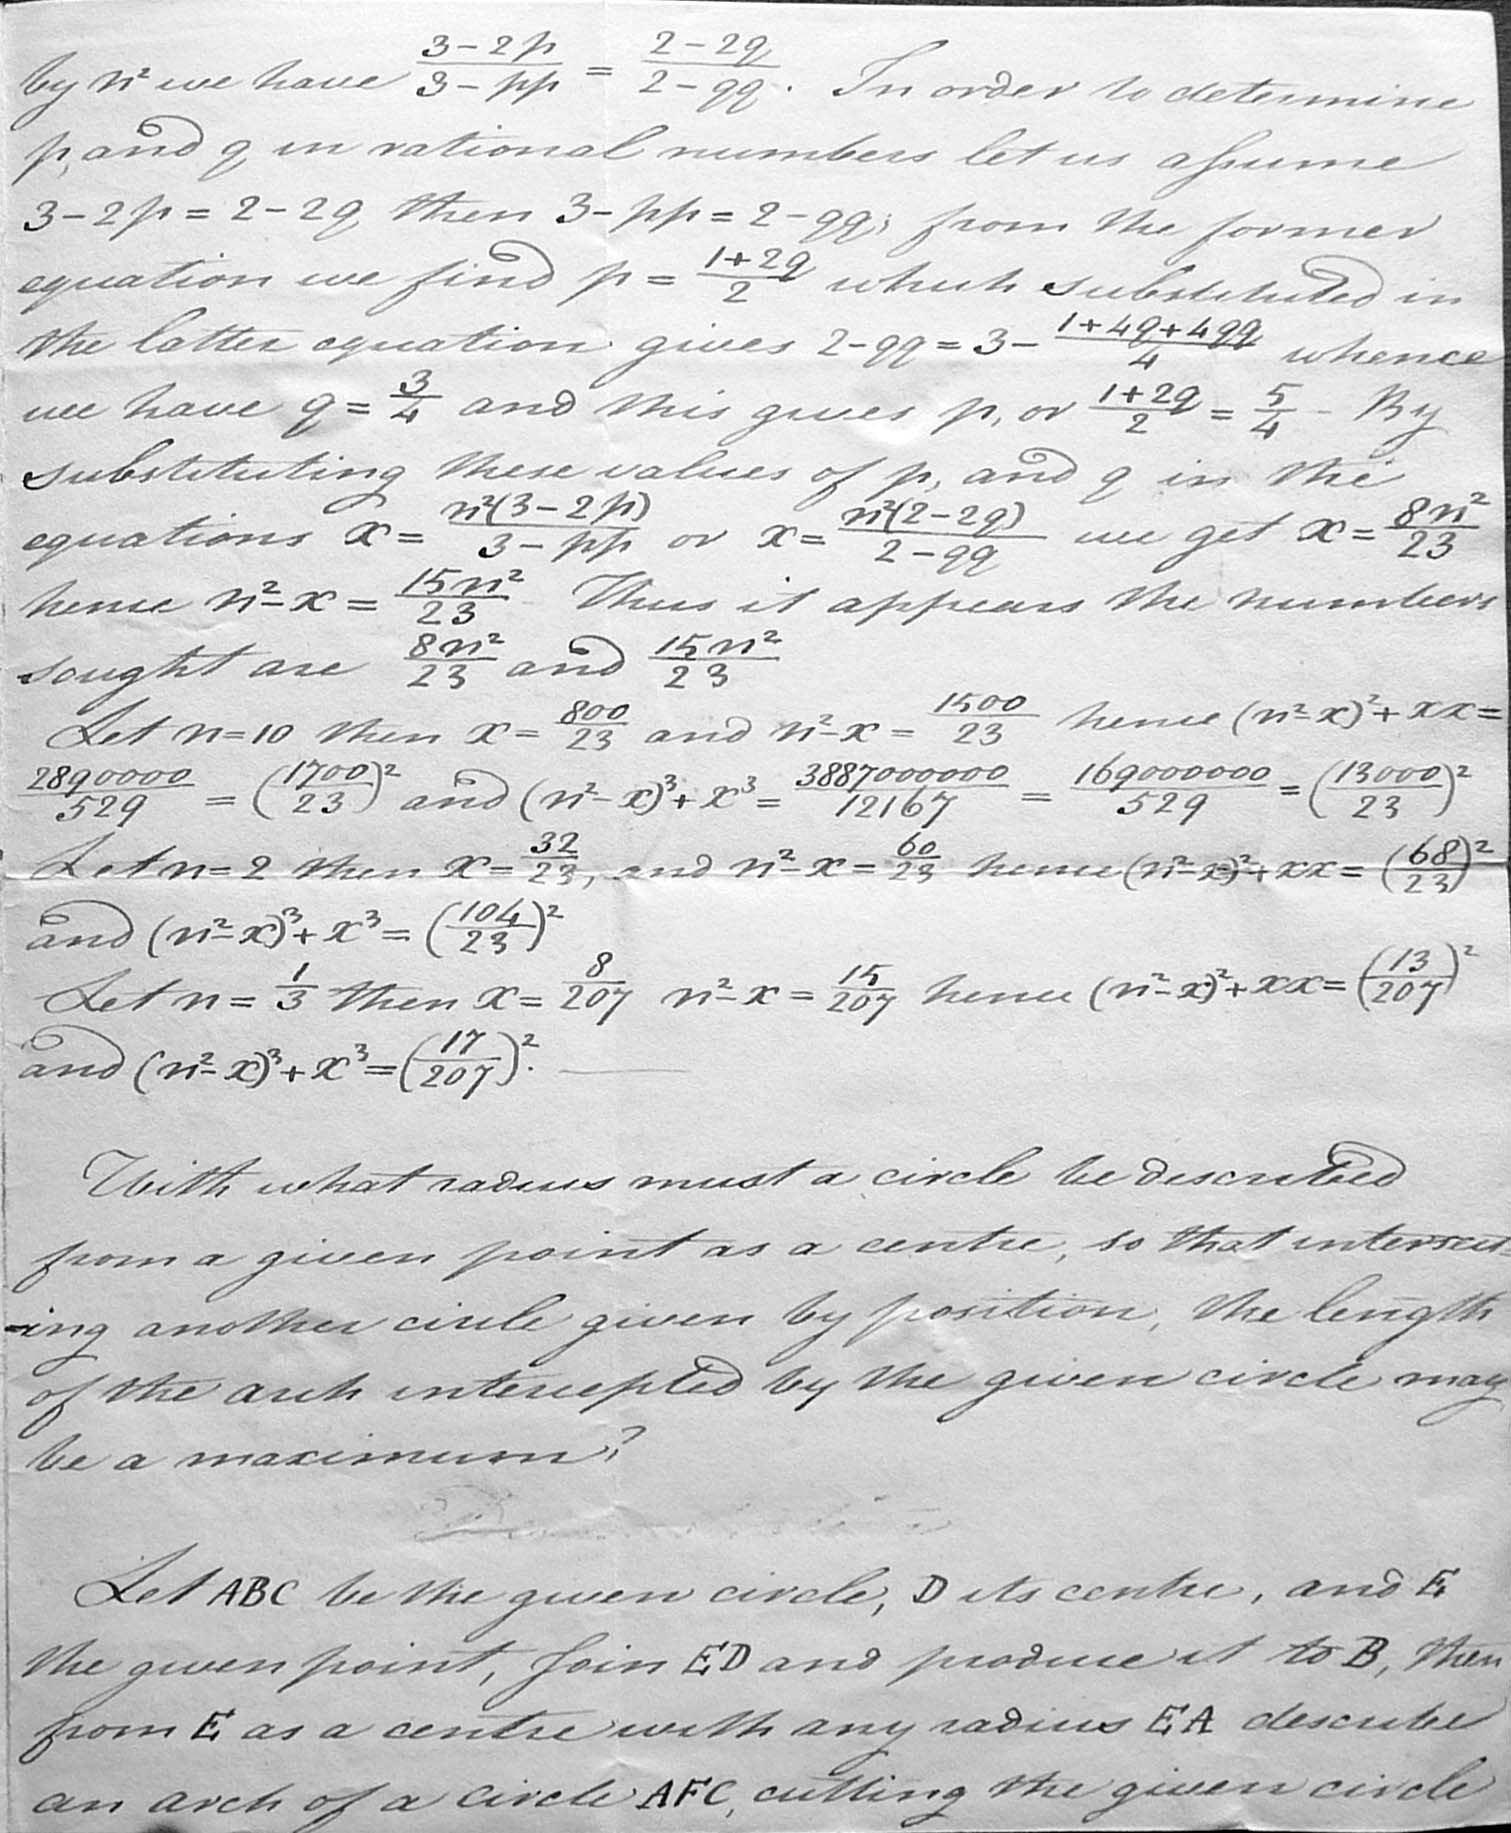 by n² we have (3-2p)/(3-pp) = (2-2q)/(2-qq). In order to determine
p, and q in rational numbers let us assume
3-2p = 2-2q, then 3-pp = 2-qq; from the former
equation we find p = (1+2q)/2 which substituted in
the latter equation gives 2-qq = 3 - (1+4q+4qq)/4 whence
we have q = 3/4 and this gives p, or (1+2q)/2 = 5/4 - By
substituting these values of p, and q in the
equations x = n²(3-2p)/(3-pp) or x = n²(2-2q)/(2-qq) we get x = 8n²/23
hence n²-x = 15n²/23 Thus it appears the numbers
sought are 8n²/23 and 15n²/23
Let n=10 then x = 800/23 and n²-x = 1500/23 hence (n²-x)²+xx=
2890000/529 = (1700/23)² and (n²-x)³+x³ = 3887000000/12167 = 169000000/529 = (13000/23)²
Let n=2 then x = 32/23, and n²-x = 60/23 hence (n²-x)²+xx = (68/23)²
and (n²-x)³+x³ = (104/23)²
Let n = 1/3 then x = 8/207 n²-x = 15/207 hence (n²-x)²+xx = (13/207)²
and (n²-x)³+x³ = (17/207)².
With what radius must a circle be described
from a given point as a centre, so that intersect-
-ing another circle given by position, the length
of the arch intercepted by the given circle may
be a maximum?
Let ABC be the given circle, D its centre, and E
the given point, Join ED and produce it to B, then
from E as a centre with any radius EA describe
an arch of a circle AFC, cutting the given circle